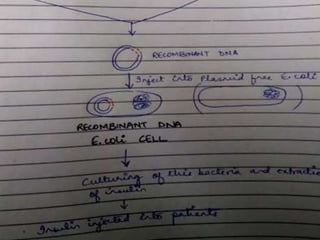 RECOMBINANT DNA
Inject into Plasmid free E.coli
RECOMBINANT DNA
E.coli CELL
Culturing of this bacteria and extraction
of insulin
Insulin injected into patients